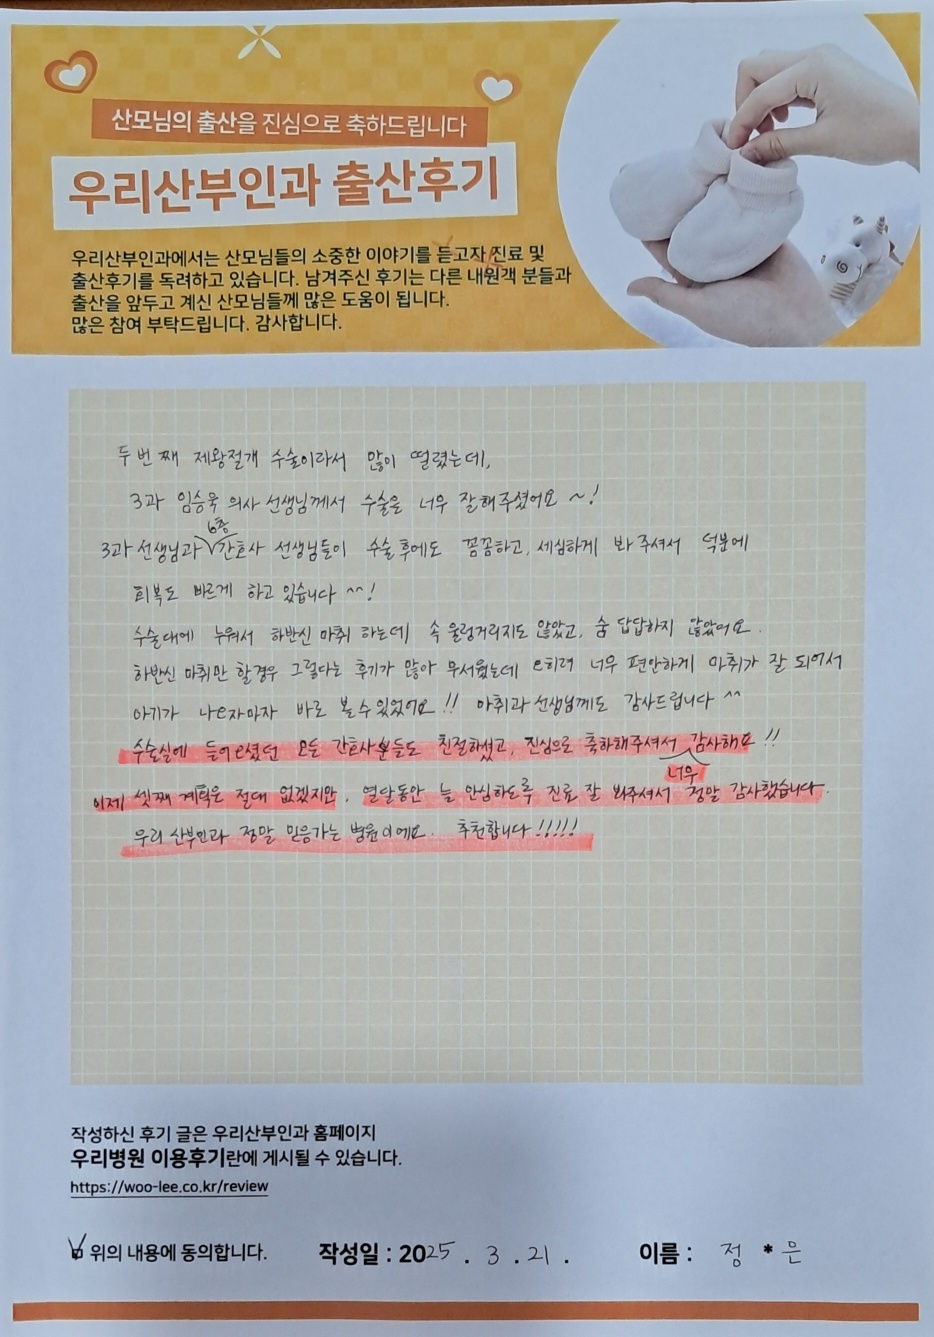 산모님의 출산을 진심으로 축하드립니다
우리산부인과 출산후기
우리산부인과에서는 산모님들의 소중한 이야기를 듣고자 진료 및
출산후기를 독려하고 있습니다. 남겨주신 후기는 다른 내원객 분들과
출산을 앞두고 계신 산모님들께 많은 도움이 됩니다.
많은 참여 부탁드립니다. 감사합니다.
두번째 제왕절개 수술이라서 많이 떨렸는데,
3과 임승욱 의사 선생님께서 수술을 너무 잘해주셨어요 ~!
6층
3과 선생님과 ∨간호사 선생님들이 수술후에도 꼼꼼하고, 세심하게 봐주셔서 덕분에
회복도 빠르게 하고 있습니다 ^^!
수술대에 누워서 하반신 마취 하는데 속 울렁거리지도 않았고, 숨 답답하지 않았어요.
하반신 마취만 할경우 그렇다는 후기가 많아 무서웠는데 오히려 너무 편안하게 마취가 잘 되어서
아기가 나오자마자 바로 볼수있었어요!! 마취과 선생님께도 감사드립니다 ^^
수술실에 들어오셨던 모든 간호사분들도 친절하셨고, 진심으로 축하해주셔서 감사해요!!
너무
이제 셋째 계획은 절대 없겠지만, 열달동안 늘 안심하도록 진료 잘 봐주셔서 정말 감사했습니다.
우리 산부인과 정말 믿음가는 병원이에요. 추천합니다!!!!!
작성하신 후기 글은 우리산부인과 홈페이지
우리병원 이용후기란에 게시될 수 있습니다.
https://woo-lee.co.kr/review
위의 내용에 동의합니다. 작성일 : 2025 . 3 . 21 . 이름 : 정 * 은